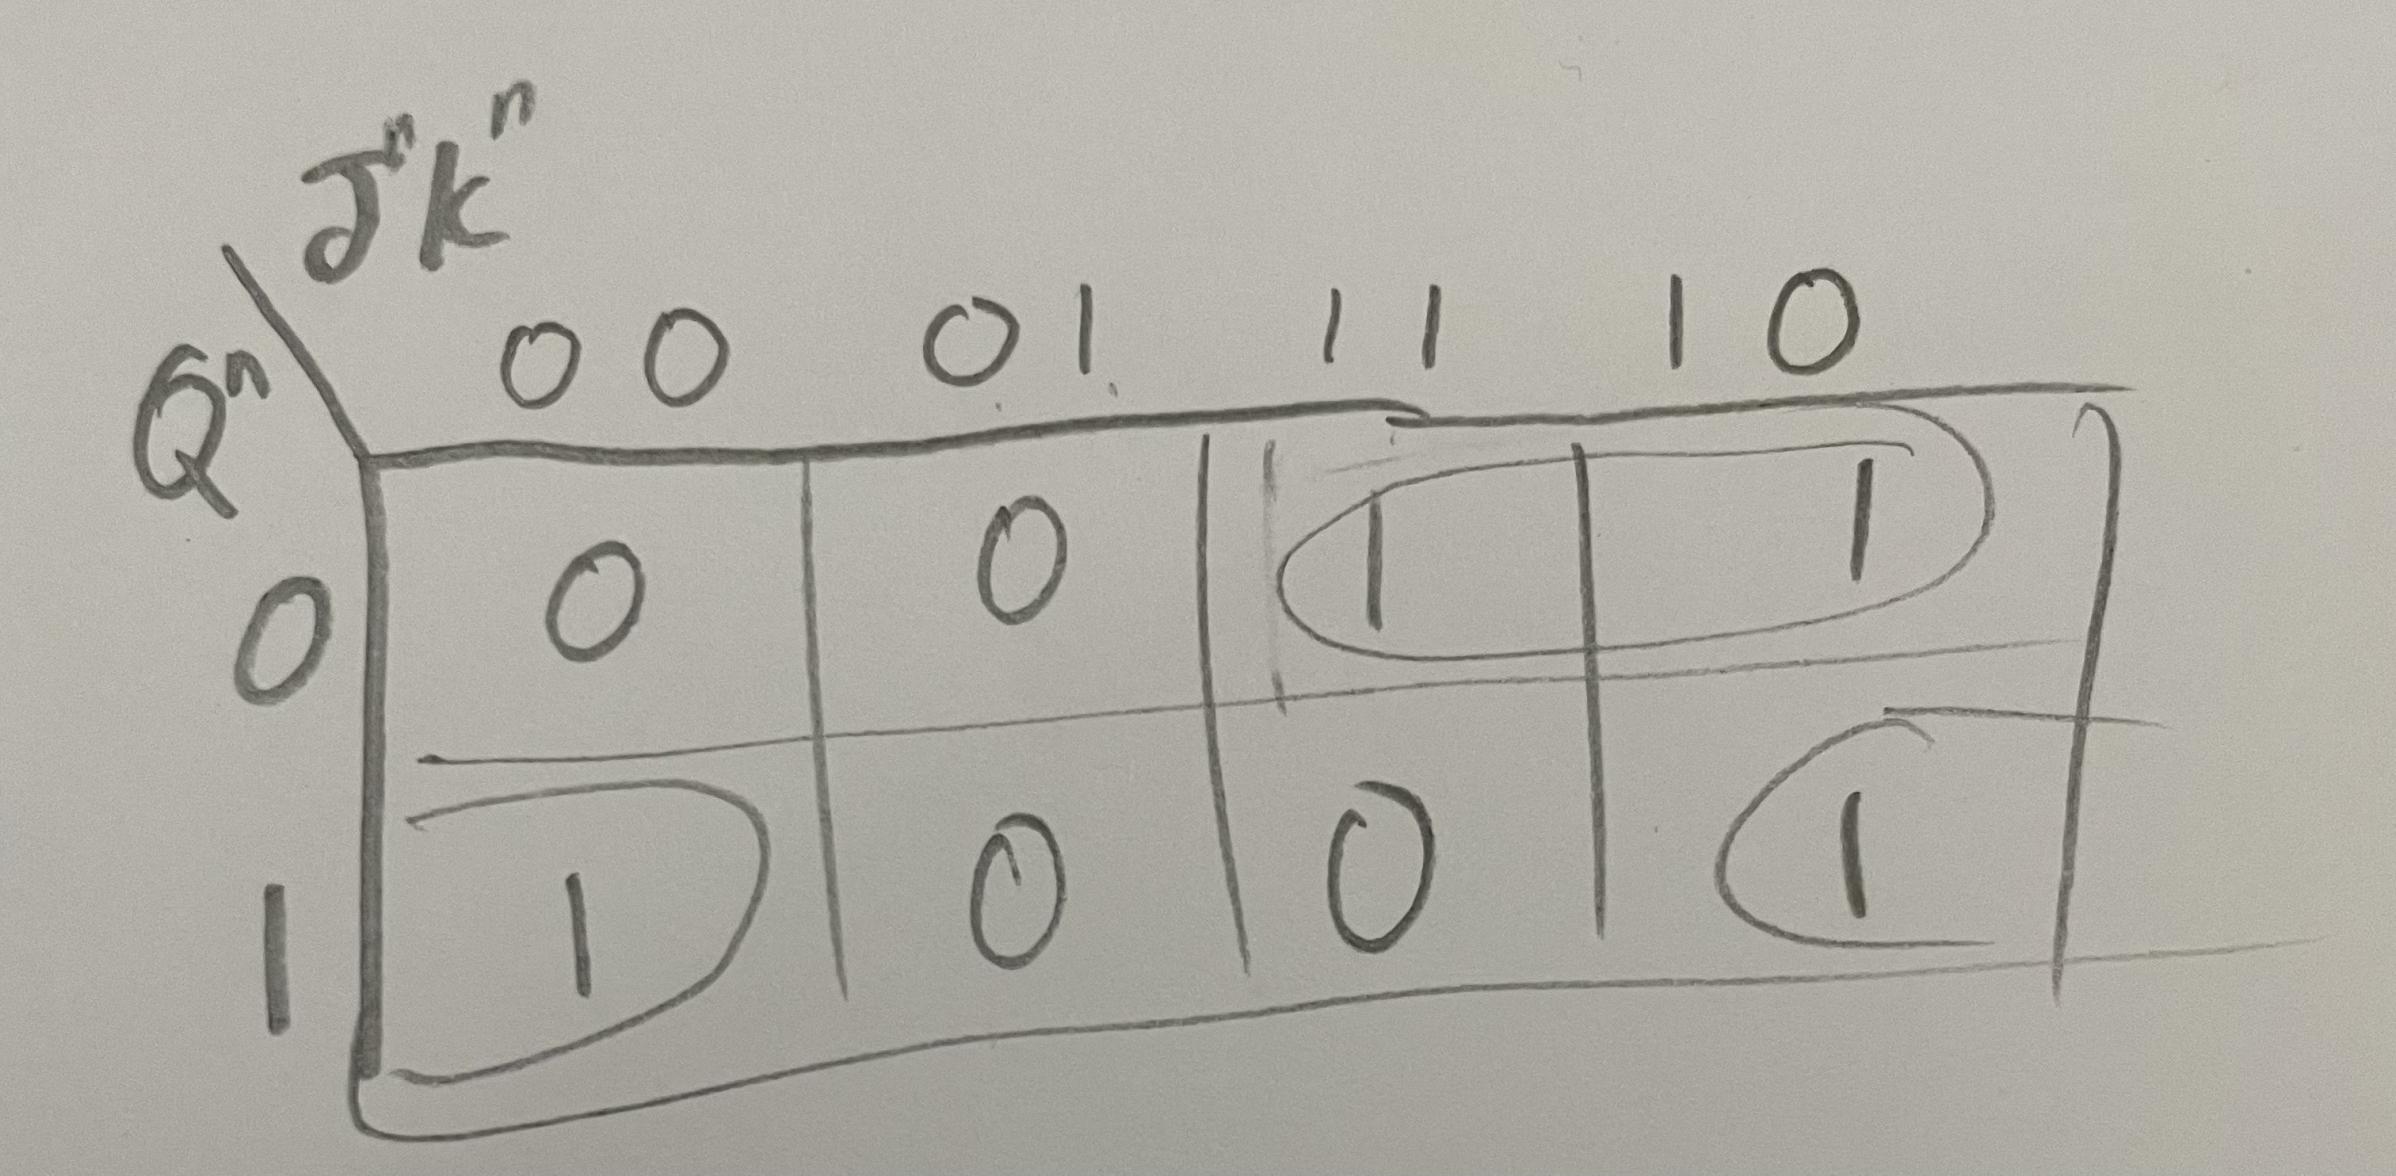 JⁿKⁿ
Qⁿ 00 01 11 10
0 0 0 1 1
1 1 0 0 1